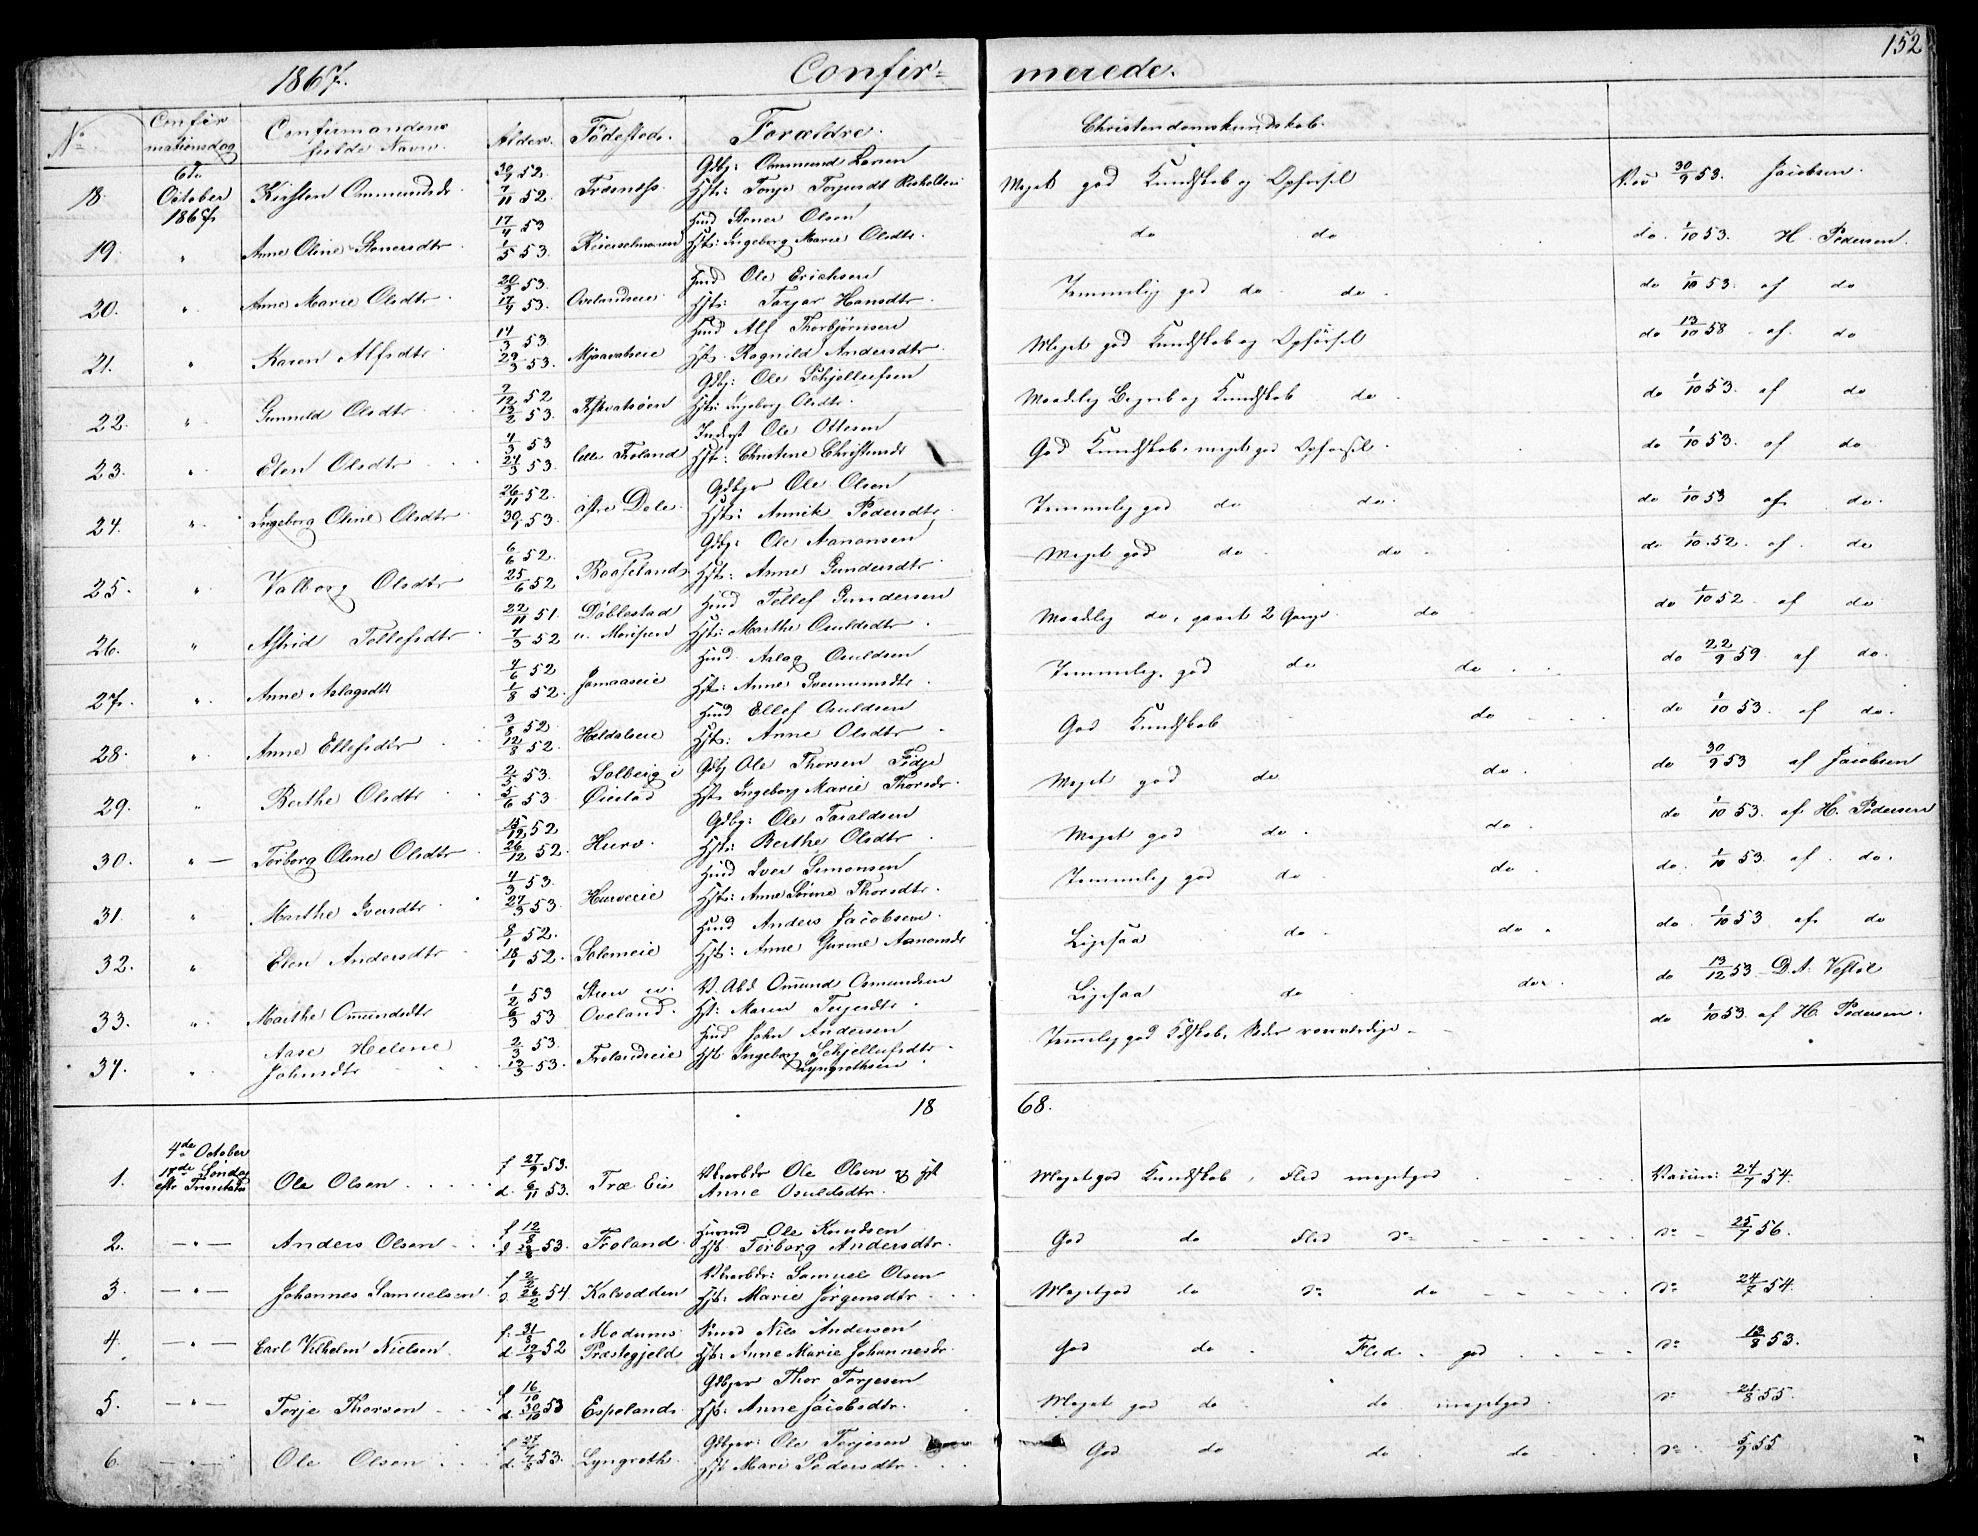 152
1867. Confir= merede.
No Confirmationsdag Confirmandens fulde Navn. Alder. Fødested. Forældre. Christendomskundskab.
18. 6te October 1867. Kirsten Ommundsdr 30/9 52. 7/11 52. Trænæss. Gdbr: Ommund Hst: Tonje Torjusdt Meget god Kundskab og Opførsel Vac 30/9 53. Jacobsen.
19. " Anne Oline Stenersdtr 17/4 53 1/5 53. Huusd Stener Olsen Hst: Ingeborg Marie Olsdtr. do do do. 1/10 53. H. Pedersen.
20. " Anne Marie Olsdtr 20/3 53. 17/9 53. Ovelandseie Huusd Ole Erichsen Hst: Torjer Hansdtr. Temmelig god do do do 1/10 53. af do
21. " Karen Alfsdtr 14/3 53. 29/3 53. Mjaavatneie Huusd Alf Thorbjørnsen Hst. Ragnild Andersdtr. Meget god Kundskab og Opførsel do 13/10 58 af. do
22. " Gunnild Olsdtr 2/12 52 13/2 53. Gdbr: Ole Schjellufsen Hst: Ingeborg Olsdtr. Maadelig Begreb og Kundskab do do 1/10 53. af do
23. " Elen Olsdtr 4/3 53 27/3 53. Lille Froland Inderst Ole Ottesen Hst: Christine Christensdr God Kundskab, meget god Opførsel. do 1/10 53. af do
24. " Ingeborg Oline Olsdtr 26/11 52. 30/1 53. østre Dale Gdbgr Ole Olsen Hst: Annik Pedersdtr. Temmelig god do do do 1/10 53 af do.
25. " Valborg Olsdtr 6/6 52. 25/6 52 Booseland Gdbr: Ole Aanonsen Hst: Anne Gundersdtr. Meget god do do do 1/10. 52. af. do
26. " Astrid Tellefsdtr 22/11 51. 7/3 52 Døblestad u. Huusd Tellef Gundersen Hst: Marthe Osuldsdtr. Maadelig do, gaaet 2 Gange do do 1/10 52 af do
27. " Anne Aslagsdtr 4/6 52 1/8 52. Jomaaseie Huusd. Aslag Osuldsen Hst: Anne Temmelig god do do do 22/9 59. af do.
28. " Anne Ellefsdtr 3/8 52 12/8 52. Hældaleeie Huusd Ellef Osuldsen Hst: Anne Olsdtr God Kundskab do do 1/10 53. af do.
29. " Berthe Olsdtr 2/5 53. 5/6 53 Solberg i Øiestad Gdbr Ole Thorsen Fidje Hst. Ingeborg Marie Thorsdr. Meget god do do. do 30/9 53 af Jacobsen
30. " — Torborg Oline Olsdtr 15/12 52 26/12 52. Hurv. Gdbg: Ole Taraldsen Hst: Berthe Olsdtr Meget god do. do. do 1/10 53. af H. Pedersen
31. " Marthe Iversdtr 4/3 53. 27/3 53. Hurveeie Huusd Iver Simonsen Hst: Anne Sirine Thorsdtr. Temmelig god do do. do. 1/10 53. af. do.
32. " Elen Andersdtr 8/1 52. 18/1 52. Solemeie Huusd Anders Jacobsen. Hst: Anne Gurine Aanonsdr Ligesaa do. do. do. 1/10 53 af. do
33. " Marthe Omundsdtr 1/2 53 6/3 53 Steen u. Oveland. V. Abd. Omund Osmundsen Hst: Maren Terjesdtr Ligesaa do do. do 13/12 53 D. A. Vestøl
34. " Aase Helene Johnsdtr 2/3 53. 13/3 53. Frolandseie Huusd John Andersen Hst: Ingeborg Schjellufsdtr Lyngrothseie Temmelig god Kdskab, do 1/10 53. af H. Pedersen.
18 68.
1. 4de October 17de Søndag eftr Trinitatis Ole Olsen f 27/9 53. d. 6/11 53. Træ Eie Ole Olsen og Hst Anne Osuldsdtr. Meget god Kundskab, Flid meget god Vaccin: 24/7 54.
2. — " — Anders Olsen f 12/8 d 53. Froland. Huusmd Ole Knudsen Hst. Torborg Andersdtr. God do Flid do do 25/7 56.
3. — " — Johannes Samuelsen f 2/2 d 26/2 54. Kalvodden Samuel Olsen Hst: Marie Jørgensdtr Meget god do do do do 24/7 54.
4. — " — Carl Vilhelm Nielsen f. 31/8 d. 19/9 52 Modums Præstegjeld Nils Andersen Hst: Anne Marie Johannesdr. God do Flid god do 13/8 53.
5. — " — Torje Thorsen f 16/10 d. 30/10 53 Espelands Gdbgr Thor Torjesen Hst: Anne Jacobsdtr. Meget god do do meget god do 21/8 55.
6. — " — Ole Olsen f 27/7 d. 53. Lyngroth. Gdbgr: Ole Torjesen Hst Mari Pedersdtr. God do do do do 5/9 55